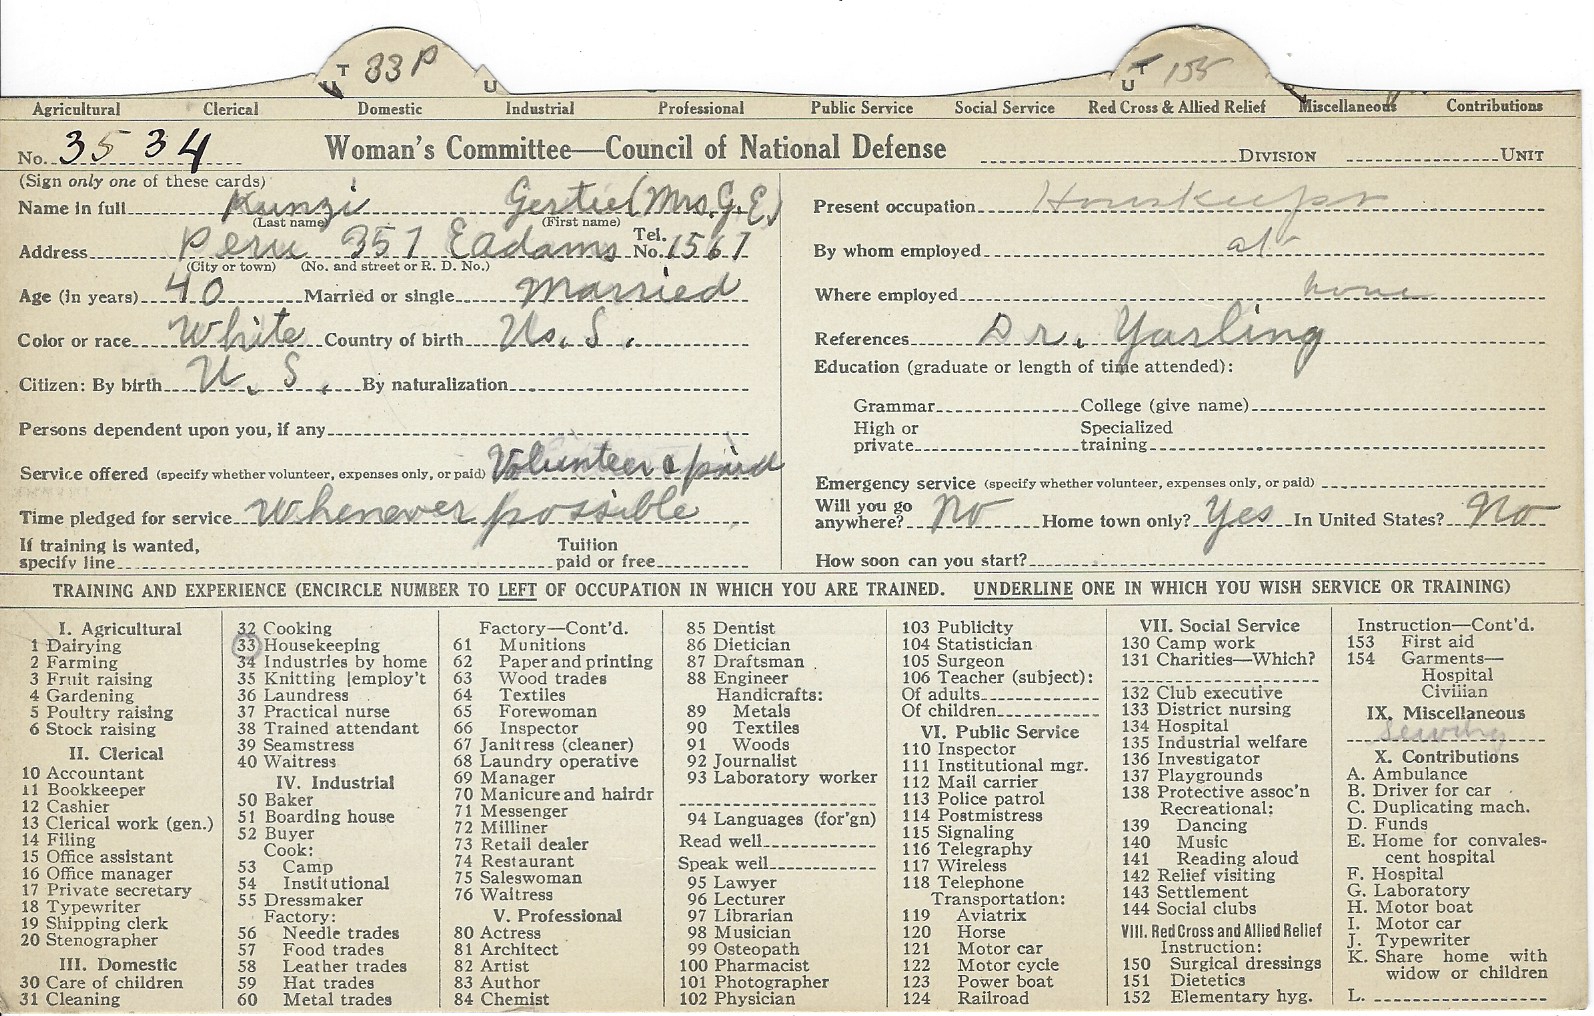 T 33 P U T 155
U U
Agricultural Clerical Domestic Industrial Professional Public Service Social Service Red Cross & Allied Relief Miscellaneous Contributions
No. 3534 Woman's Committee—Council of National Defense DIVISION UNIT
(Sign only one of these cards)
Name in full Kunzi Gertie (Mrs. G. E.)
(Last name) (First name)
Address Peru 357 E Adams Tel. No. 1567
(City or town) (No. and street or R. D. No.)
Age (in years) 40 Married or single Married
Color or race White Country of birth Us. S.
Citizen: By birth U. S. By naturalization
Persons dependent upon you, if any
Service offered (specify whether volunteer, expenses only, or paid) Volunteer & paid
Time pledged for service Whenever possible
If training is wanted, specify line Tuition paid or free
Present occupation Houskeeper
By whom employed at
Where employed home
References Dr. Yarling
Education (graduate or length of time attended):
Grammar College (give name)
High or private Specialized training
Emergency service (specify whether volunteer, expenses only, or paid)
Will you go anywhere? No Home town only? Yes In United States? No
How soon can you start?
TRAINING AND EXPERIENCE (ENCIRCLE NUMBER TO LEFT OF OCCUPATION IN WHICH YOU ARE TRAINED. UNDERLINE ONE IN WHICH YOU WISH SERVICE OR TRAINING)
I. Agricultural
1 Dairying
2 Farming
3 Fruit raising
4 Gardening
5 Poultry raising
6 Stock raising
II. Clerical
10 Accountant
11 Bookkeeper
12 Cashier
13 Clerical work (gen.)
14 Filing
15 Office assistant
16 Office manager
17 Private secretary
18 Typewriter
19 Shipping clerk
20 Stenographer
III. Domestic
30 Care of children
31 Cleaning
32 Cooking
33 Housekeeping
34 Industries by home
35 Knitting [employ't
36 Laundress
37 Practical nurse
38 Trained attendant
39 Seamstress
40 Waitress
IV. Industrial
50 Baker
51 Boarding house
52 Buyer
Cook:
53 Camp
54 Institutional
55 Dressmaker
Factory:
56 Needle trades
57 Food trades
58 Leather trades
59 Hat trades
60 Metal trades
Factory—Cont'd.
61 Munitions
62 Paper and printing
63 Wood trades
64 Textiles
65 Forewoman
66 Inspector
67 Janitress (cleaner)
68 Laundry operative
69 Manager
70 Manicure and hairdr
71 Messenger
72 Milliner
73 Retail dealer
74 Restaurant
75 Saleswoman
76 Waitress
V. Professional
80 Actress
81 Architect
82 Artist
83 Author
84 Chemist
85 Dentist
86 Dietician
87 Draftsman
88 Engineer
Handicrafts:
89 Metals
90 Textiles
91 Woods
92 Journalist
93 Laboratory worker
94 Languages (for'gn)
Read well
Speak well
95 Lawyer
96 Lecturer
97 Librarian
98 Musician
99 Osteopath
100 Pharmacist
101 Photographer
102 Physician
103 Publicity
104 Statistician
105 Surgeon
106 Teacher (subject):
Of adults
Of children
VI. Public Service
110 Inspector
111 Institutional mgr.
112 Mail carrier
113 Police patrol
114 Postmistress
115 Signaling
116 Telegraphy
117 Wireless
118 Telephone
Transportation:
119 Aviatrix
120 Horse
121 Motor car
122 Motor cycle
123 Power boat
124 Railroad
VII. Social Service
130 Camp work
131 Charities—Which?
132 Club executive
133 District nursing
134 Hospital
135 Industrial welfare
136 Investigator
137 Playgrounds
138 Protective assoc'n
Recreational:
139 Dancing
140 Music
141 Reading aloud
142 Relief visiting
143 Settlement
144 Social clubs
VIII. Red Cross and Allied Relief
Instruction:
150 Surgical dressings
151 Dietetics
152 Elementary hyg.
Instruction—Cont'd.
153 First aid
154 Garments—
Hospital
Civilian
IX. Miscellaneous
Sewing
X. Contributions
A. Ambulance
B. Driver for car
C. Duplicating mach.
D. Funds
E. Home for convales-
cent hospital
F. Hospital
G. Laboratory
H. Motor boat
I. Motor car
J. Typewriter
K. Share home with
widow or children
L.